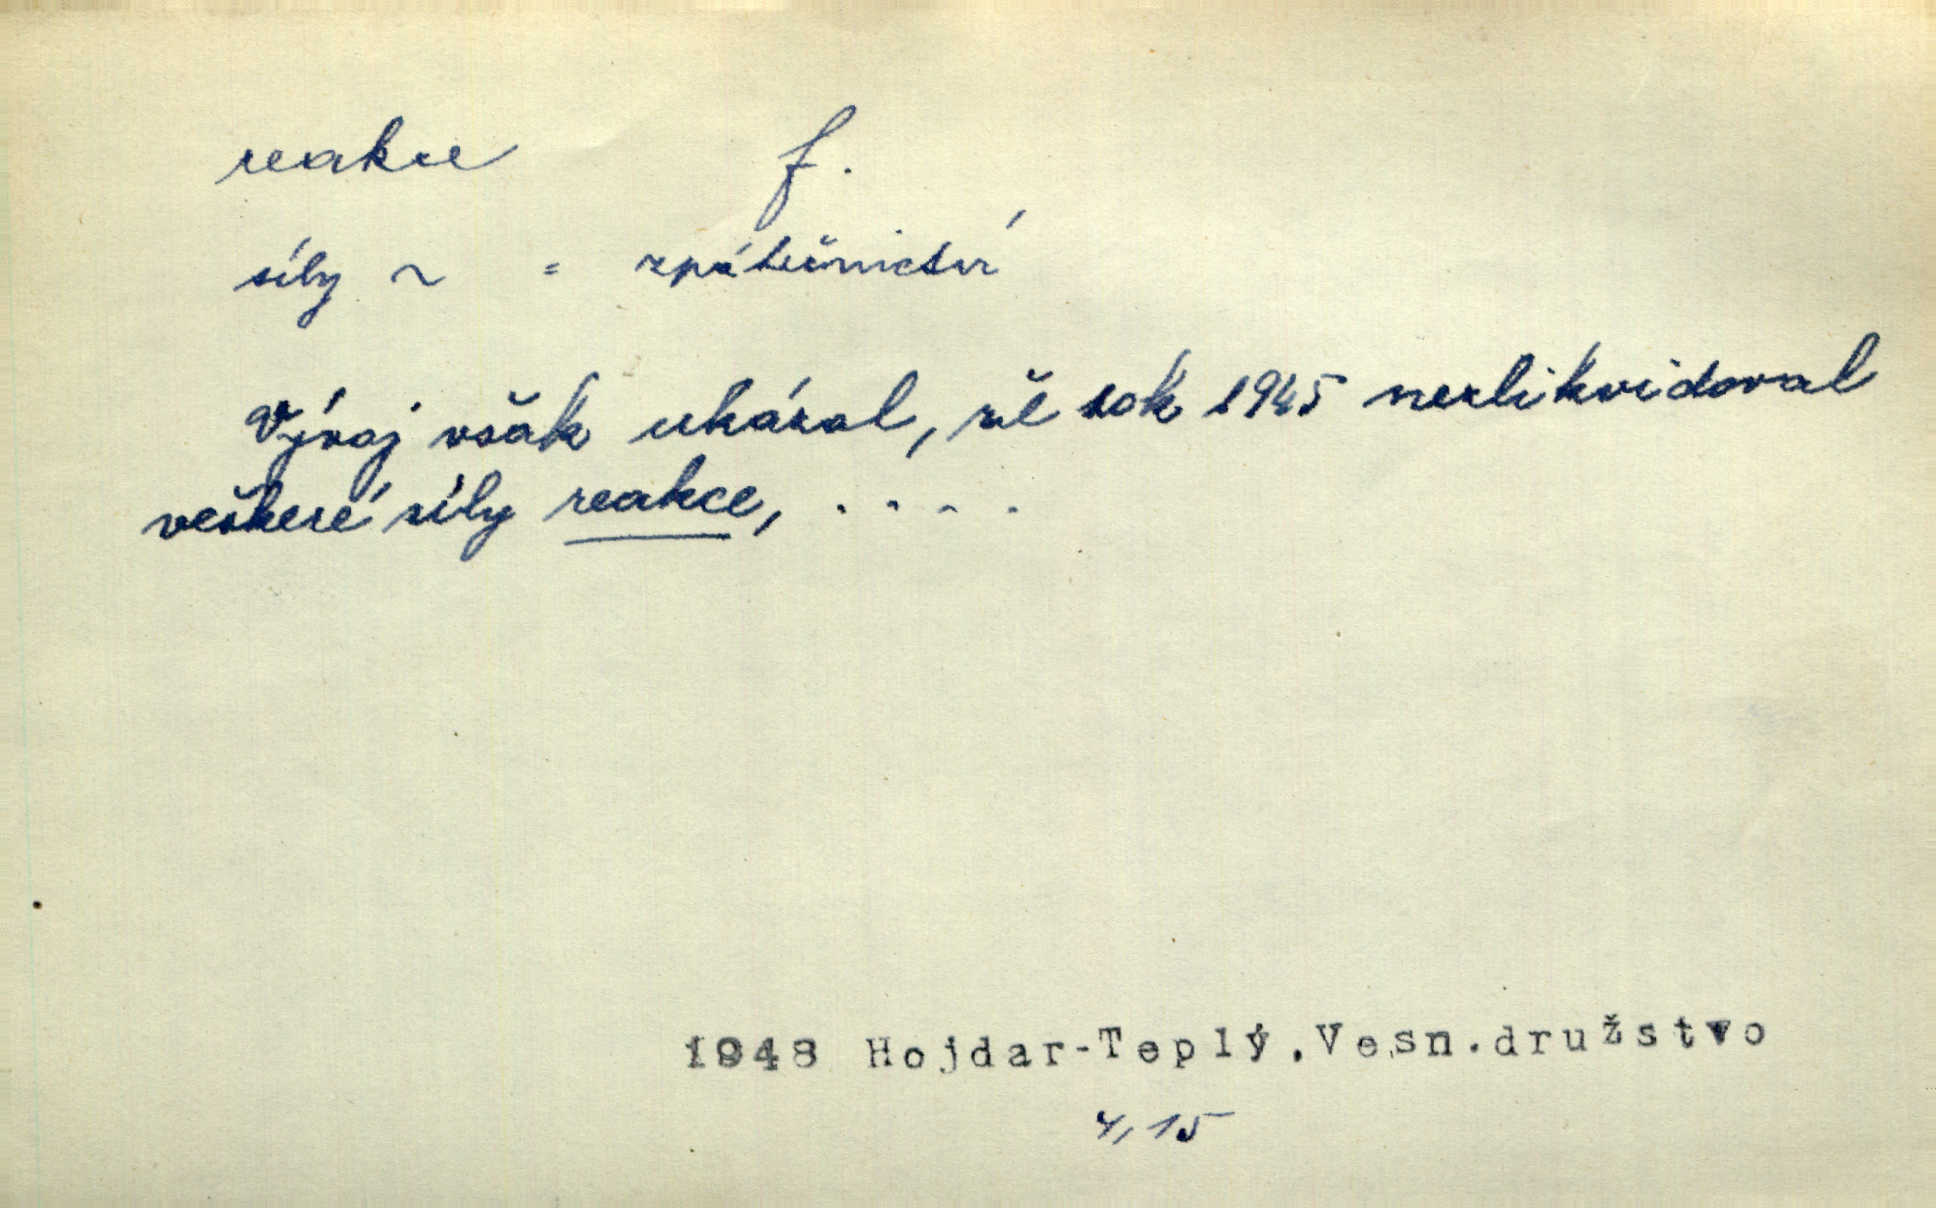 reakce f.
síly ~ = zpátečnictví
Vývoj však ukázal, že rok 1945 nezlikvidoval
veškeré síly reakce, . . . .
1948 Hojdar-Teplý.Vesn.družstvo
4, 15